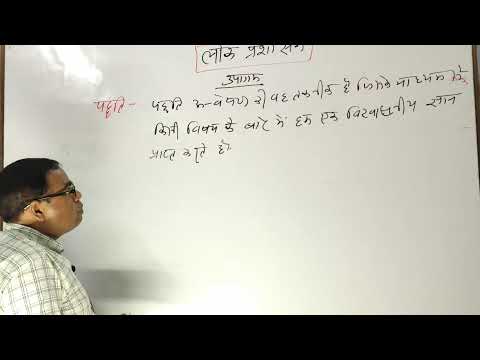 लोक प्रशासन
उपागम
पद्धति - पद्धति अन्वेषण की वह तकनीक है जिसके माध्यम से
किसी विषय के बारे में हम एक विश्वसनीय ज्ञान
प्राप्त करते है।